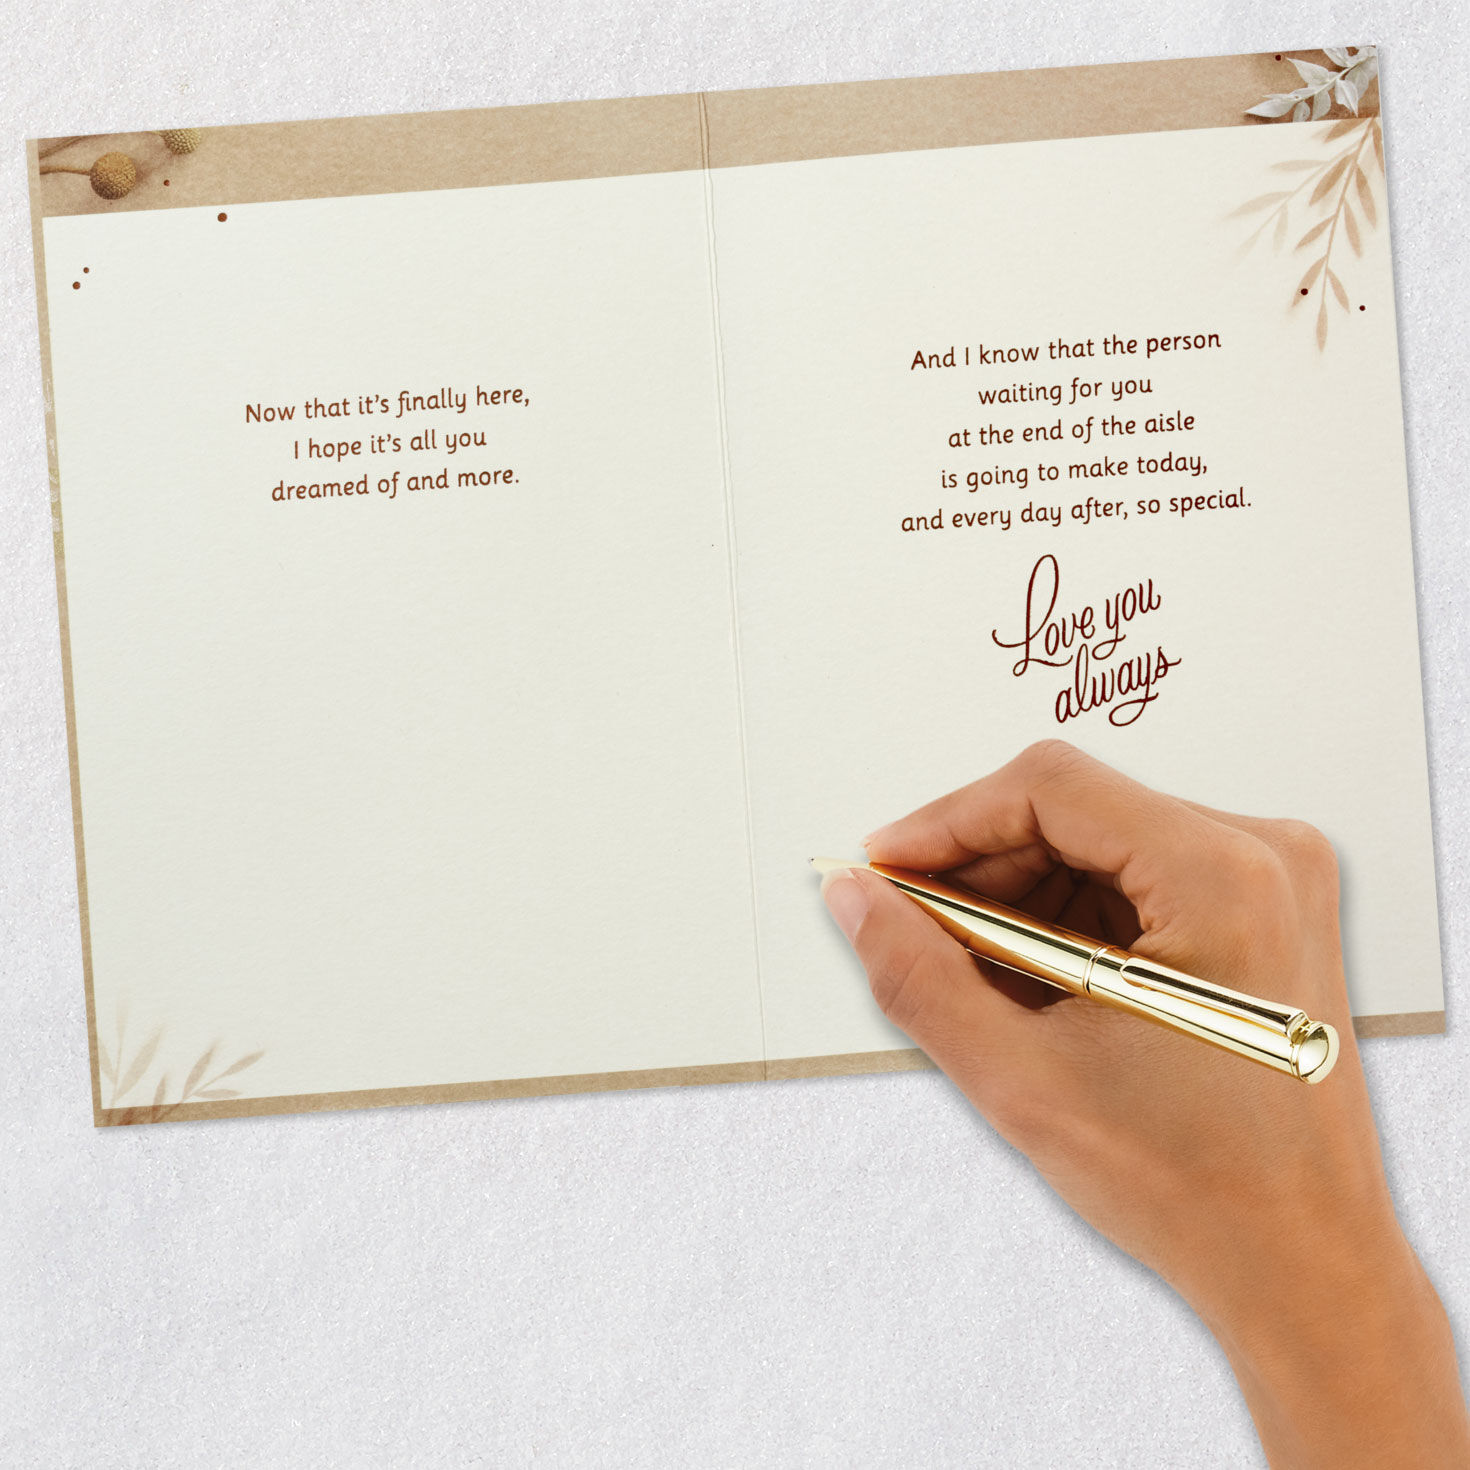 Now that it's finally here,
I hope it's all you
dreamed of and more.
And I know that the person
waiting for you
at the end of the aisle
is going to make today,
and every day after, so special.
Love you
always